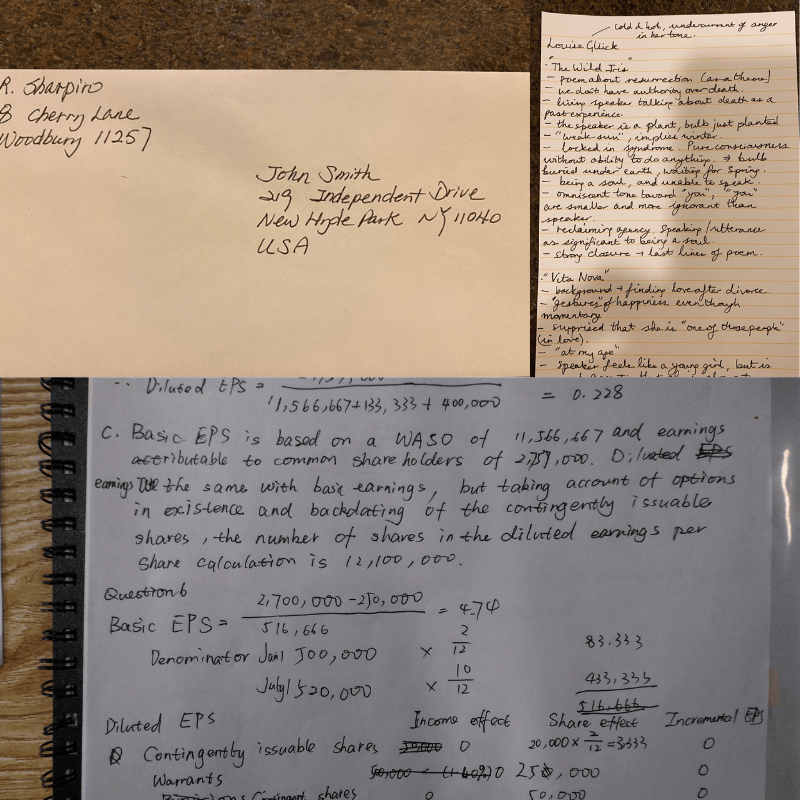 R. Sharpiro
8 Cherry Lane
Woodbury 11257
John Smith
219 Independent Drive
New Hyde Park NY 11040
USA
cold & hot, undercurrent of anger
in her tone.
Louise Glück
"The Wild Iris"
- poem about resurrection (as a theme)
- we don't have authority over death.
- living speaker talking about death as a
past experience.
- the speaker is a plant, bulb just planted
- "weak sun", implies winter.
- locked in syndrome. Pure consciousness
without ability to do anything. → bulb
buried under earth, waiting for Spring.
- being a soul, and unable to speak.
- omniscent tone toward "you", "you"
are smaller and more ignorant than
speaker.
- reclaiming agency. Speaking/utterance
as significant to being a soul.
- strong closure → last lines of poem.
"Vita Nova"
- background → finding love after divorce.
- "gestures" of happiness even though
momentary
- surprised that she is "one of those people"
(in love).
- "at my age"
- speaker feels like a young girl, but is
∴ Diluted EPS =
11,566,667+133,333+400,000
= 0.228
C. Basic EPS is based on a WASO of 11,566,667 and earnings
attributable to common shareholders of 2,757,000. Diluted EPS
earnings the same with basic earnings, but taking account of options
in existence and backdating of the contingently issuable
shares, the number of shares in the diluted earnings per
share calculation is 12,100,000.
Question 6
Basic EPS = 2,700,000-250,000 = 4.74
516,666
Denominator Jan1 500,000 × 2/12 83.333
July1 520,000 × 10/12 433,333
516,666
Diluted EPS Income effect Share effect Incremental EPS
Contingently issuable shares 0 20,000 × 2/12 = 3,333 0
Warrants 0 250,000 0
Contingent shares 0 50,000 0